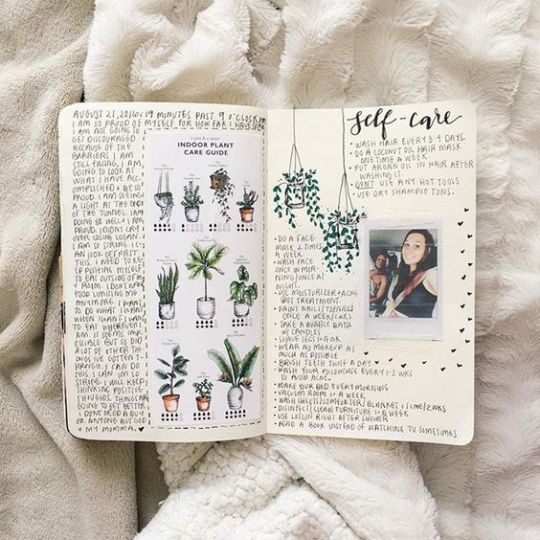 AUGUST 21, 2016 : 19 MINUTES PAST 9 O'CLOCK PM
I AM SO PROUD OF MYSELF FOR HOW FAR I HAVE
I AM NOT GOING TO
GET DISCOURAGED
BECAUSE OF THE
BARRIERS I AM
STILL FACING. I AM
GOING TO LOOK AT
WHAT I HAVE ACC-
OMPLISHED & BE SO
PROUD. I AM SEEING
A LIGHT AT THE END
OF THE TUNNEL. I AM
DOING SO WELL & I AM
PROUD. I DIDN'T CRY
I AM SO STRONG. I
CAN LOOK PAST
THIS. I NEED TO
MYSELF
TO EAT OUTSIDE OF MY
ROOM. I DON'T WANT
FOOD LIMITING ME
ANYMORE. I WANT
TO DO WHAT I WANT
WHEN I WANT. I WANT
TO EAT WHEREVER I
AM. IT SEEMS IMPO-
SSIBLE BUT SO DID
A LOT OF OTHER TH-
INGS I'VE GOTTEN T-
HROUGH. I CAN DO
THIS. I CAN. I'M SO
STRONG. I WILL KEEP
THINKING POSITIVE
THOUGHTS. THINGS ARE
GOING TO GET BETTER.
I DON'T NEED A BOY
OR ANYONE BUT GOD
& MY MOMMA. ♥
INDOOR PLANT
CARE GUIDE
self-care
• WASH HAIR EVERY 3-4 DAYS
• DO A COCONUT OIL HAIR MASK
ONE TIME A WEEK
• PUT ARGAN OIL IN HAIR AFTER
WASHING IT.
• DON'T USE ANY HOT TOOLS
• USE DRY SHAMPOO TONS.
• DO A FACE
MASK 2 TIMES
A WEEK
• WASH FACE
ONCE IN MOR-
NING/ONCE AT
NIGHT.
• USE MOISTURIZER + ACNE
SPOT TREATMENT
• PAINT NAILS/TOENAILS
ONCE A WEEK/2WKS
• TAKE A BUBBLE BATH
W/ CANDLES
• SHAVE LEGS 1X A WK
• WEAR NO MAKEUP AS
MUCH AS POSSIBLE
• BRUSH TEETH TWICE A DAY
• WASH YOUR PILLOWCASE EVERY 1-2 WKS
TO AVOID ACNE.
• MAKE YOUR BED EVERY MORNING
• VACUUM ROOM 1X A WEEK
• WASH SHEETS/COMFORTER/BLANKET 1 TIME/2WKS
• DISINFECT/CLEAN FURNITURE 1X A WEEK
• USE LOTION RIGHT AFTER SHOWER
• READ A BOOK INSTEAD OF WATCHING TV SOMETIMES